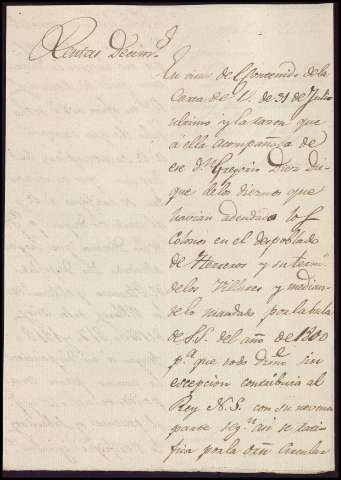 Rentas Decim.s
En vista del Contenido de la
Carta de V. de 31 de Julio
ultimo y la razon que
a ella acompaña de
ese d.n Gregorio Diez
que de los diezmos que
havian adeudado los
Colonos en el despoblado
de Herreros y su term.
de los Villares y median
do lo mandado por la bula
de S.S. del año de 1800
p.a que todo sin
excepcion contribuia al
Rey N.S. con su novena
parte seg.n asi se rati
fica por la Circular